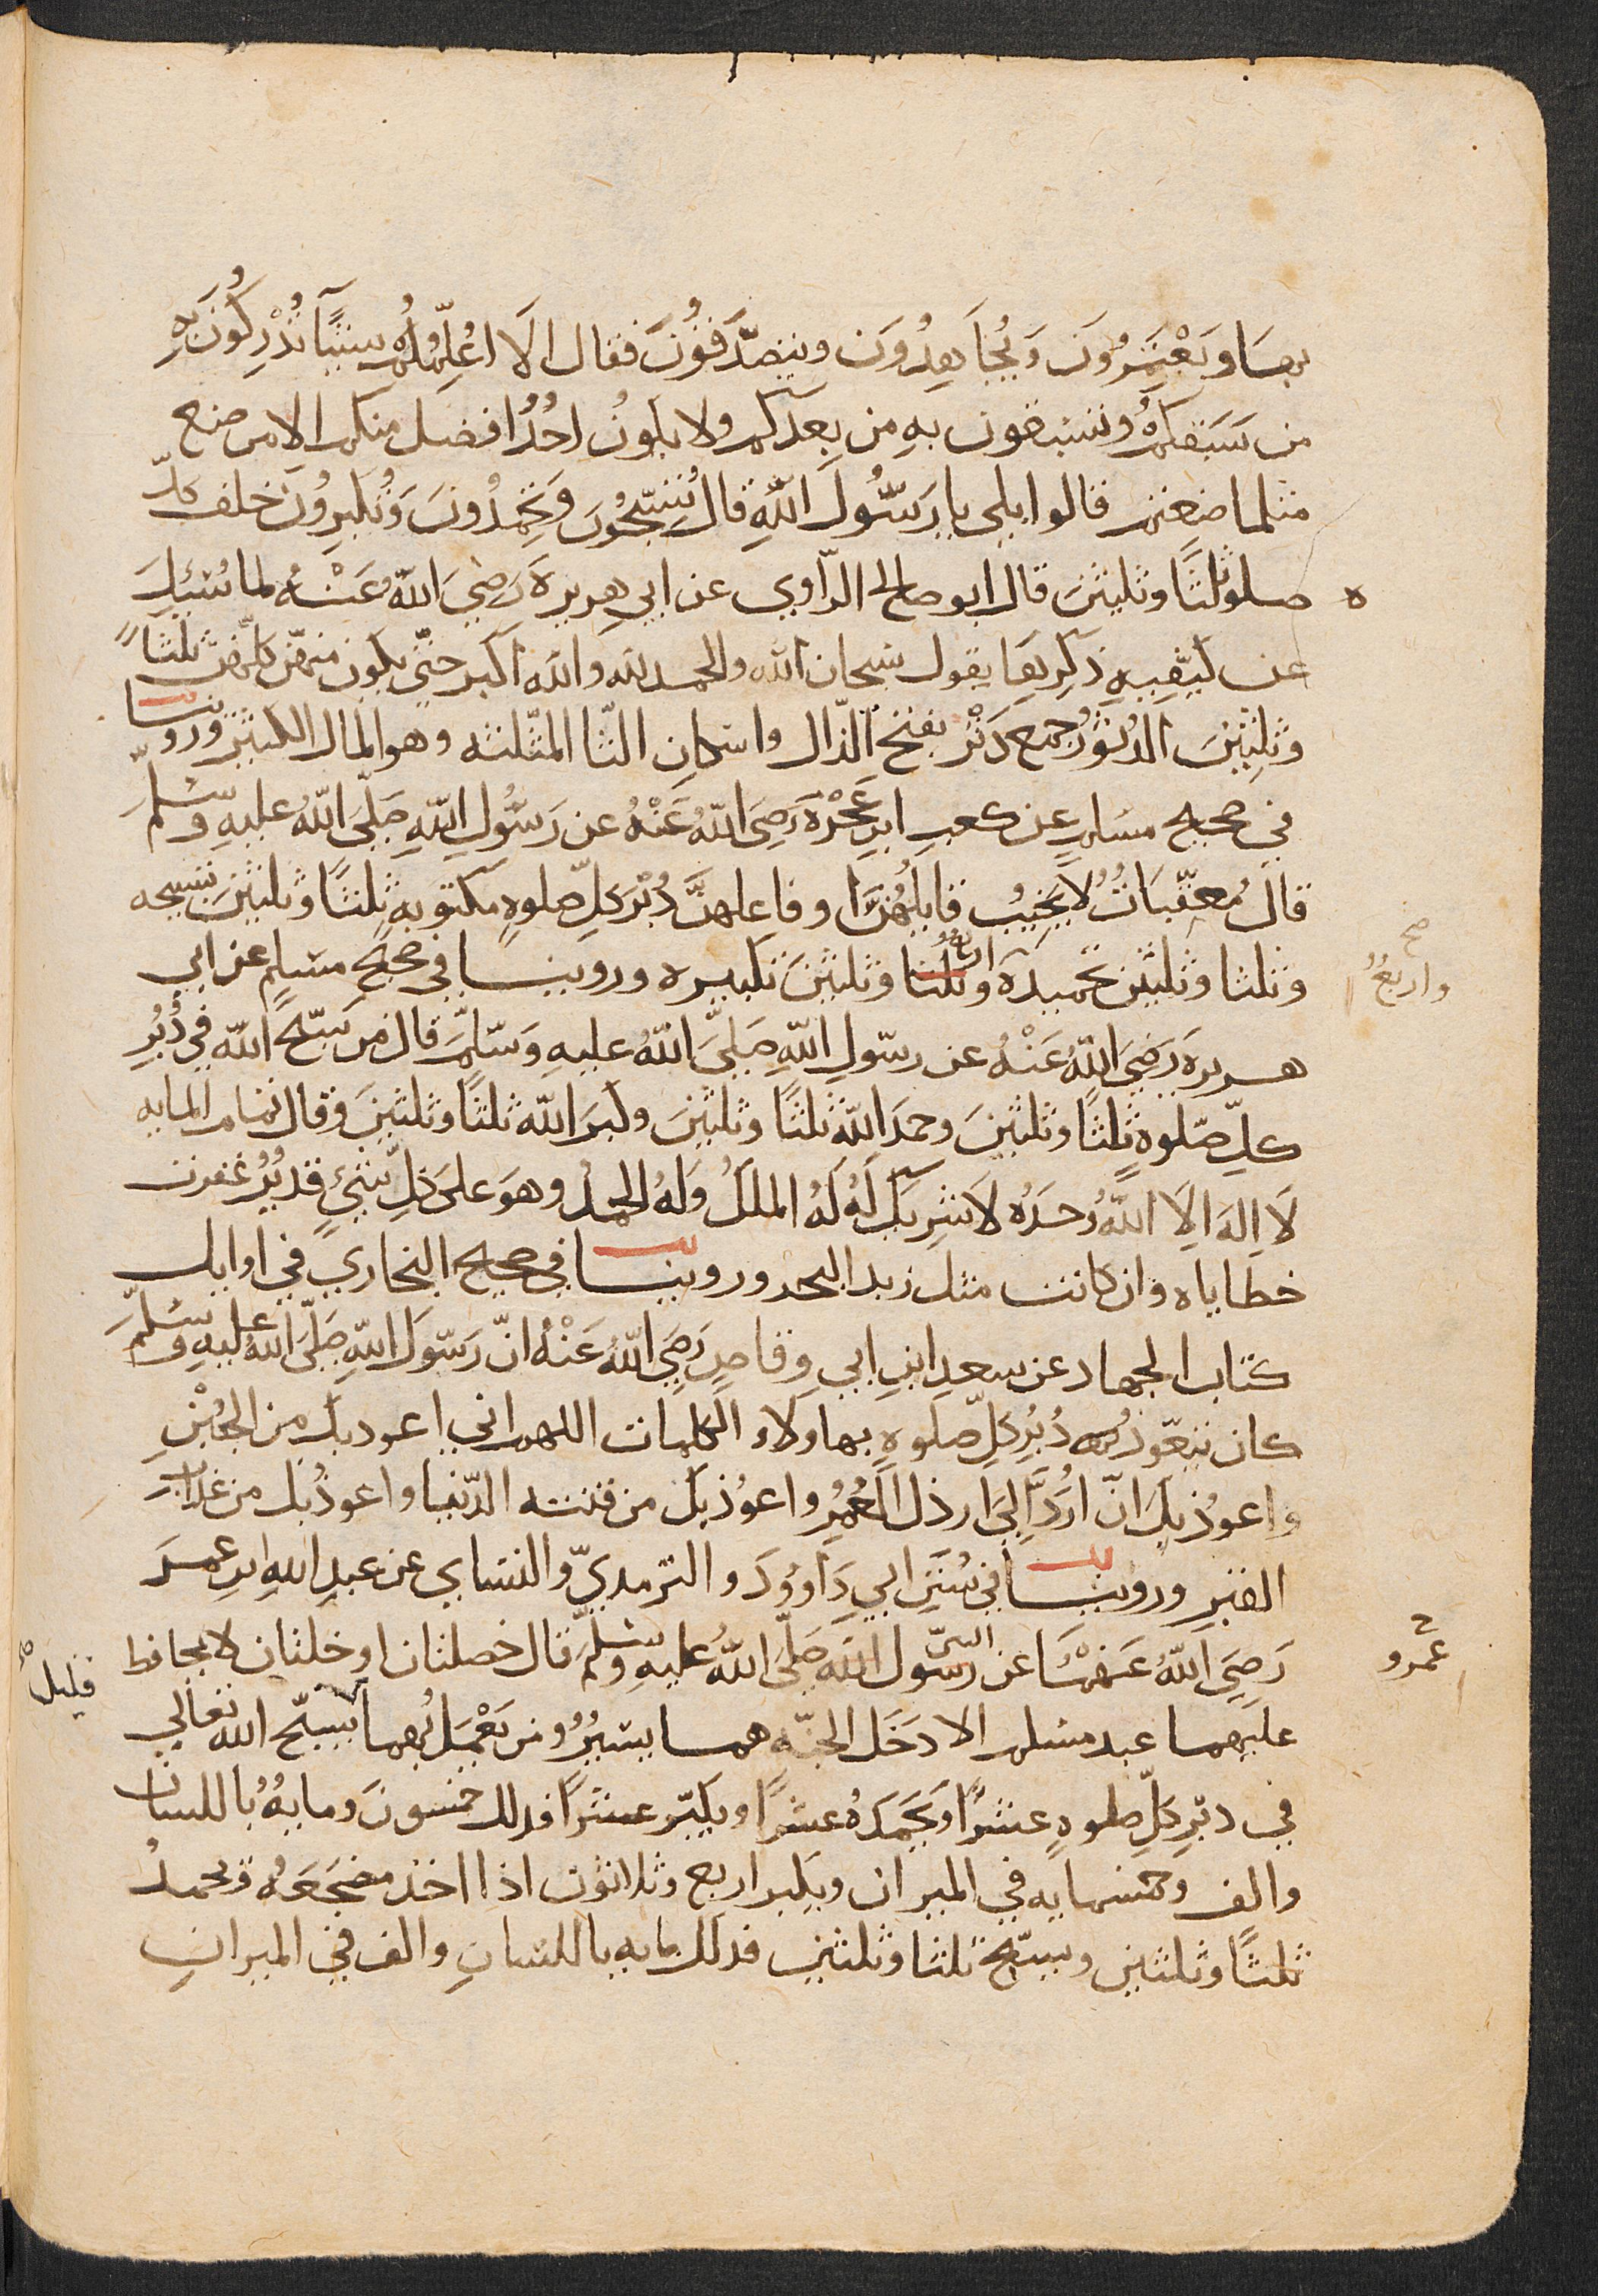 بها ويَعْتَمِرُونَ وَيُجَاهِدُونَ ويتصدَّقُونَ فقال الَا اعُلِّمُكُم شيئًا تُدْرِكُونَ بِهِ
من سَبَقكم وتسبقون بهِ من بعدَكم ولا يكونُ احُدُ افضل منكم الا من صنع
مثلما صنعتم قالوا بلى يا رَسُّولَ اللهِ قال تُسَبّحُونَ وَتحمِدُونَ وَتُكبِرُونَ خلف كلّ
صلوة ثلثًا وثلثينَ قال ابو صالح الرّاوي عن ابي هريرةَ رَضِيَ اللهُ عَنْهُ لما سُئِلَ
عن كيفيةِ ذكرِها يقول سبحان الله والحمد لله والله اكبر حتّي يكون منهنّ كلّهنّ ثلثًا
وثلِثينَ الدُثوُر جمع دَثْر بفتح الدّال واسكان الثّا المثّلثه وهو المال الكثير وروينا
في صحيح مسلم عن كعب ابن عَجْرَةَ رَضِيَ اللهُ عَنْهُ عن رَسُّولِ اللهِ صَلّيَ اللهُ عليهِ وسَلّمَ
قالَ مُعقّبَاتُ لاَ يَخِيبُ قايلُهُنَّ او فاعلهنَّ دُبُرَ كلِّ صلوةٍ مكتوبهٍ ثلثًا وثلثينَ تسبيحه
وثلثا وثلثين تحميدَة وثلثا وثلثينَ تكبيره وروينا في صحيح مسلم عن ابي
واربعُ صح
هريرة رَضِيَ اللهُ عَنْهُ عن رسّولِ اللهِ صَلَّيَ اللهُ عليهِ وَسّلَّمَ قال من سَبّح الله في دُبُرِ
كلِّ صّلوةٍ ثلثًا وثلثينَ وحمدَ الله ثلثًا وثلثينَ وكبرَ الله ثلثا وثلثينَ وقال تمام المايه
لَا اِلهَ الِا اللهُ وحدَهُ لَا شرِيكَ لَهُ لَهُ الملكُ وَلَهُ الحمدُ وهوَ علىَ كلِّ شيءٍ قديُرُ غفرت
خطاياه وان كانت مثل زبد البحر وروينا في صحيح البخاريِ في اوايل
كتاب الجهاد عن سعد ابنِ ابي وقاصٍ رَضِيَ اللهُ عَنْهُ انّ رَسّولَ اللهِ صَلّيَ اللهُ عليهِ وسَلّمَ
كان يتعّوذ دُبُرِ كلِّ صّلوةٍ بهاولاء الكلمات اللهم اني اعوذ بك من الجُبْنِ
واعوُذ بكَ انّ ارَُدّ اِلىَ ارذل العُمُرِ واعوُذ بكَ من فتنه الدّنيا واعوذُ بكَ من عذاب
القبر وروينا في سُنَنِ ابي دَاووُدَ والترمديّ والنسايِ عن عبدِ اللهِ ابنِ عمرَ
عمرو
رَضِيَ اللهُ عَنهُمَا عن رسّول اللهِ صَلّيَ اللهُ عليهِ وَسْلّمَ قال خصلتان او خلتان لا يحافظ
النبيّ
عليهما عبد مسلم الا دَخَل الجنّه هما يسيُرُ ومن يَعْمَل بُهما يسبّح الله تعالي
قليلُ
في دبرِ كلِّ صلوةٍ عشرًا وَيَحْمَدهُ عشرًا ويكبّر عشرًا فدلك خمسونَ ومايهُ باللسان
والف وخمسمايه في الميزان ويكبر اربع وثلاثون اذا اخذ مضجَعَهُ ويحمدُ
ثلثًا وثلثين ويسبّح ثلثا وثلثين فدلك مايه باللسانِ والف في الميزانِ